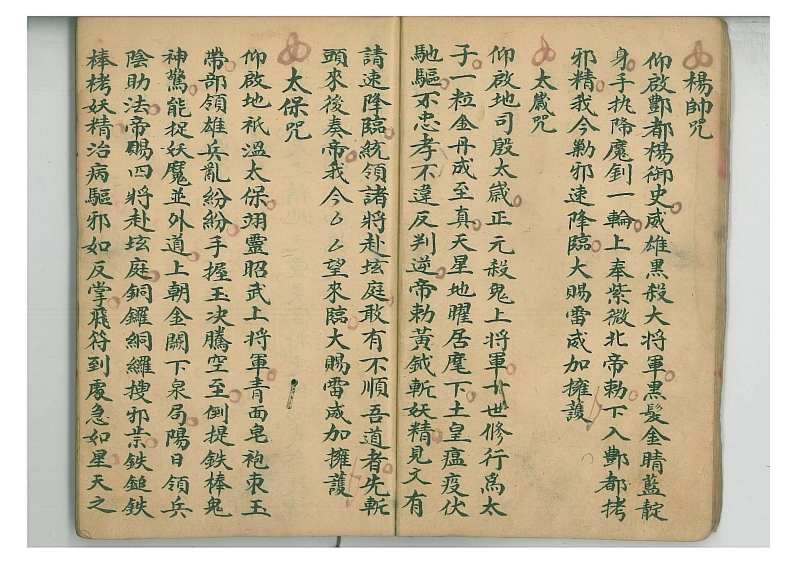 楊帥咒
仰啟酆都楊御史威雄黑殺大將軍黑髮金睛藍靛
身手执降魔釗一輪上奉紫微北帝勅下入酆都拷
邪精我今勦邪速降臨大賜雷威加擁護
太歲咒
仰啟地司殷太歲正元殺鬼上將軍廿世修行爲太
子一粒金丹成至真天星地曜居麾下土皇瘟疫伏
馳驅不忠孝不違反判逆帝勅黃鉞斬妖精見文有
請速降臨統領諸將赴坛庭敢有不順吾道者先斬
頭來後奏帝我今厶厶望來臨大賜雷威加擁護
太保咒
仰啟地祇溫太保翊靈昭武上將軍青面皂袍束玉
帶部領雄兵亂紛紛手握玉决騰空至倒提鉄棒鬼
神驚能捉妖魔並外道上朝金闕下泉局陽日領兵
陰助法帝賜四將赴坛庭銅鑼銅羅搜邪祟鉄鎚鉄
棒栲妖精治病驅邪如反掌飛符到處急如星天之